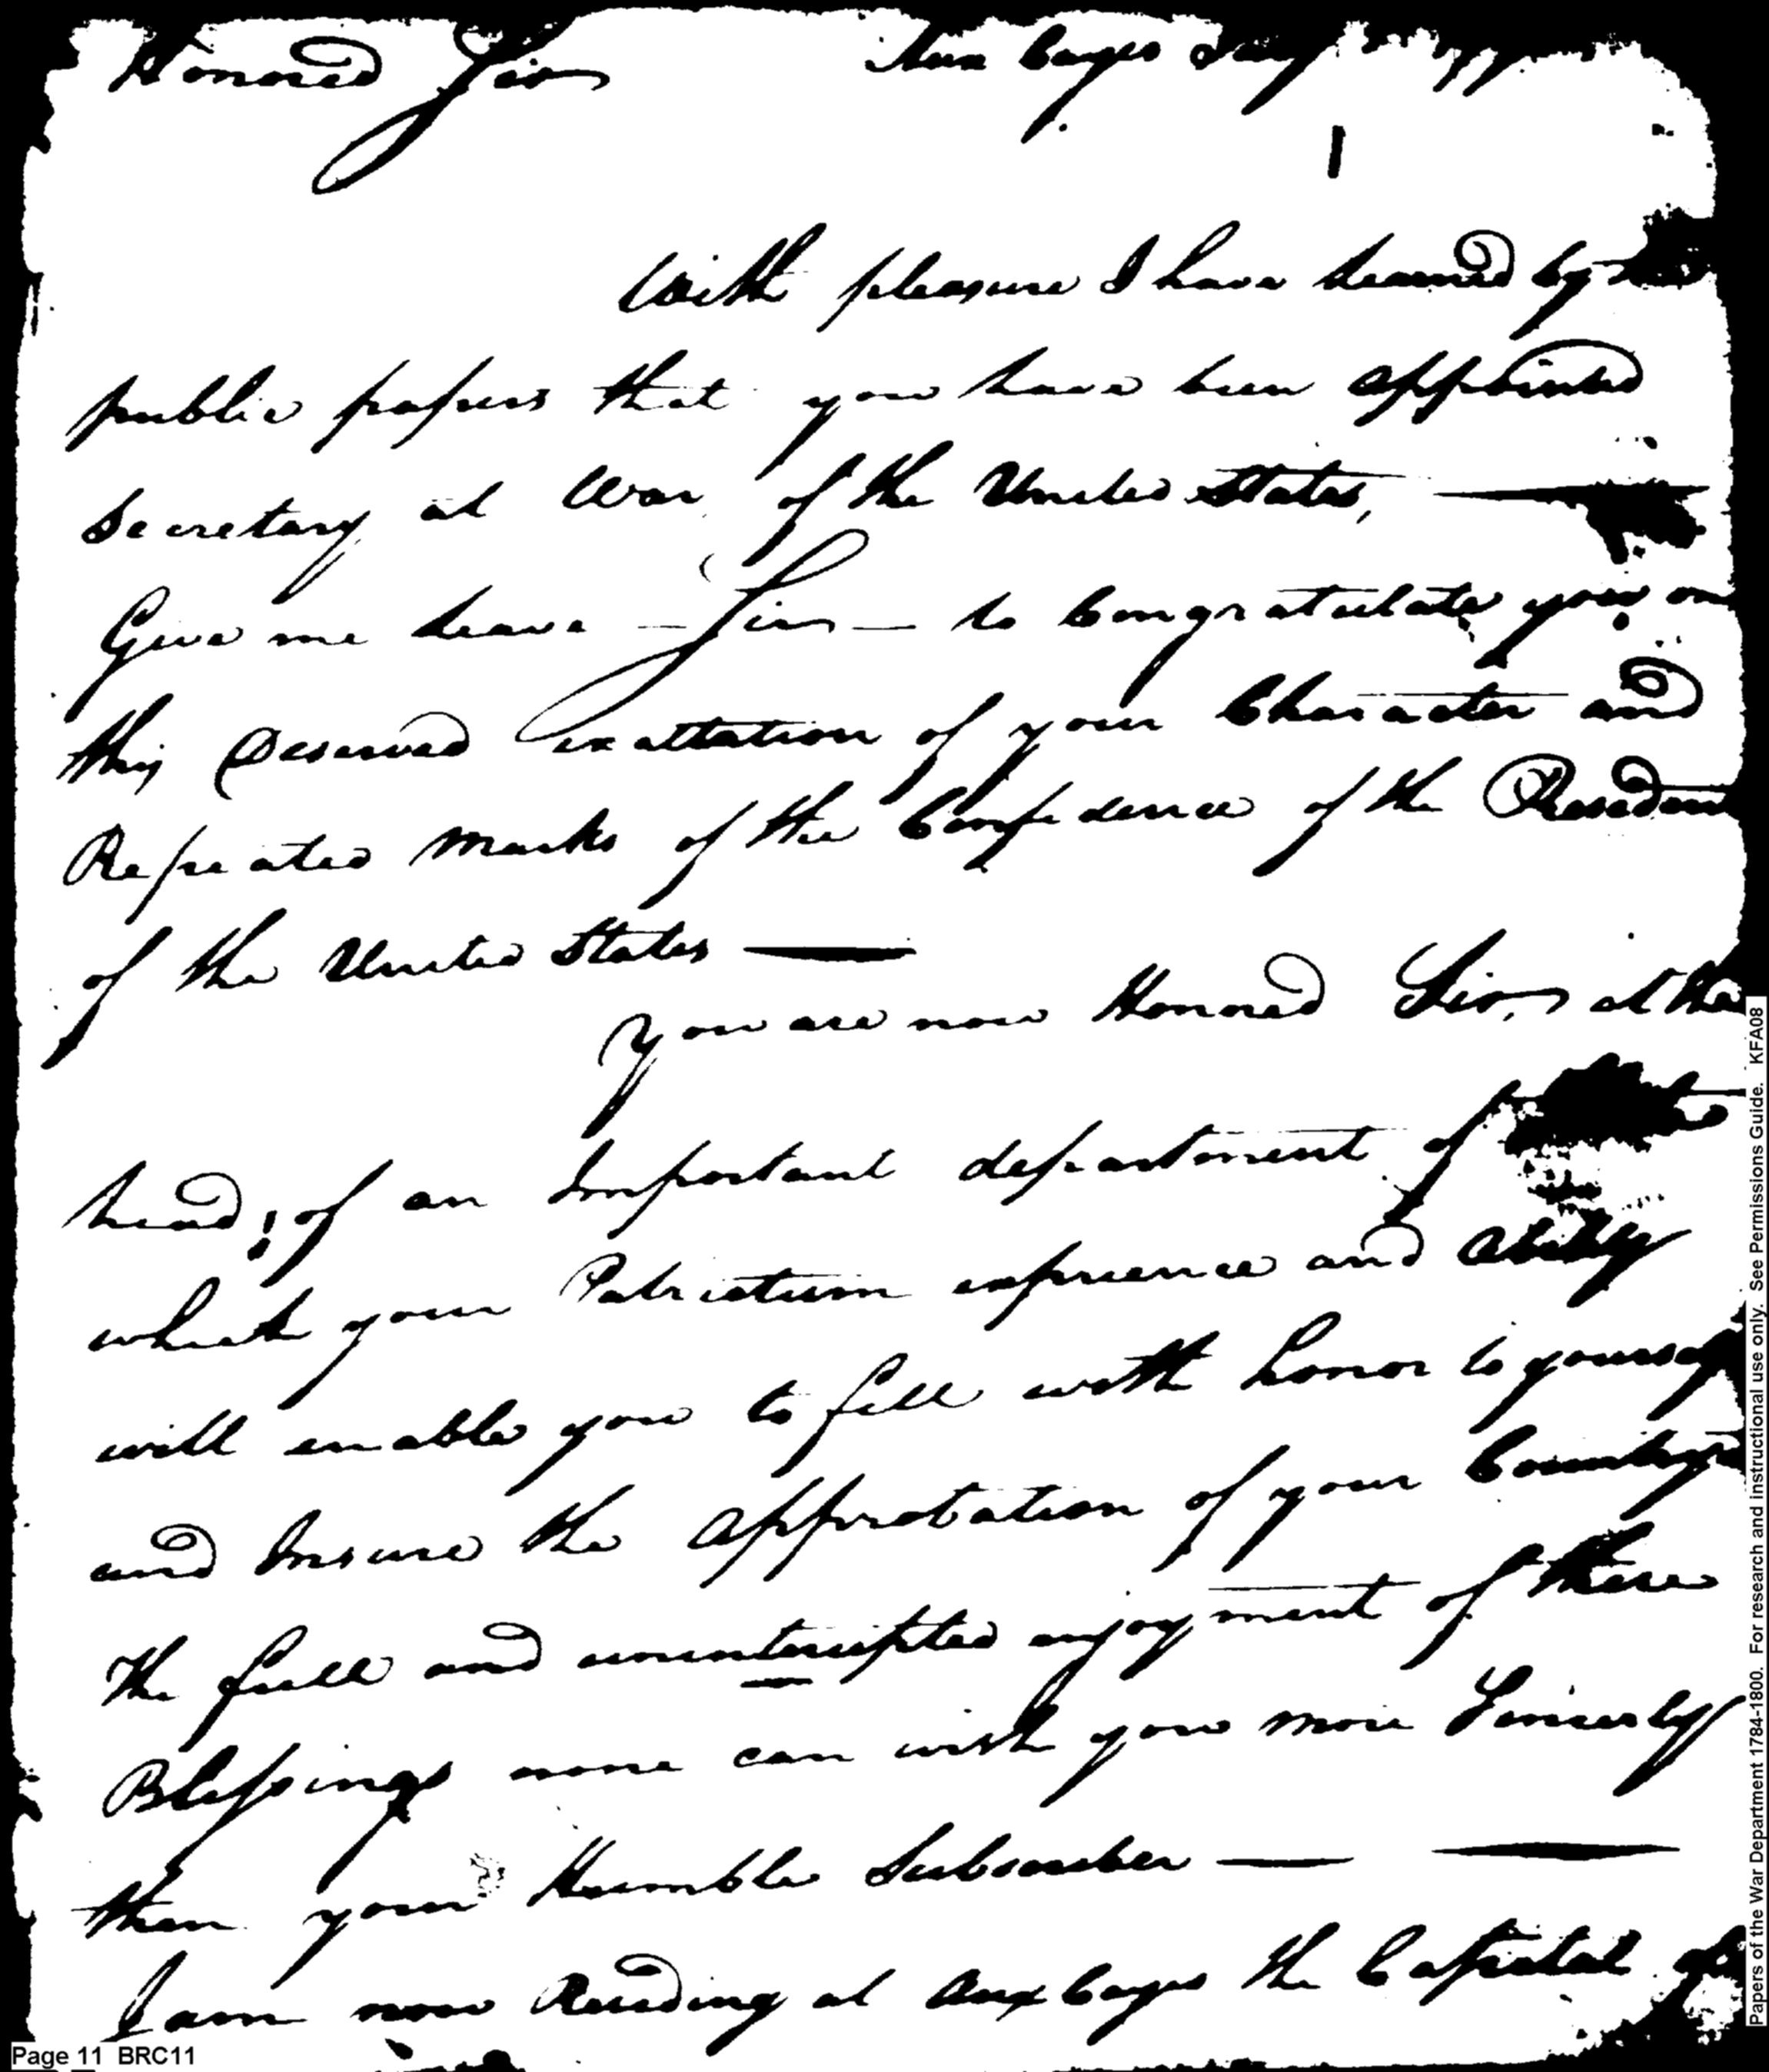 Honored Sir Aux Cayes
With pleasure I have learned by the
public papers that you have been appointed
Secretary at War of the United States,
Give me leave - Sir - to Congratulate you on
this Deserved exaltation of your Character and
Repeated marks of the Confidence of the President
of the United States
You are now Honored Sir, at the
head, of an Important department of
which your Patriotism experience and ability
will enable you to fill with honor to yourself
and Insure the approbation of your Country
the full and uninterupted enjoyment of these
Blessings none can wish you more Sincerly
then your Humble Subscriber
I am now Residing at Aux Cayes the Capital of
Page 11 BRC11
Papers of the War Department 1784-1800. For research and instructional use only. See Permissions Guide. KFA08